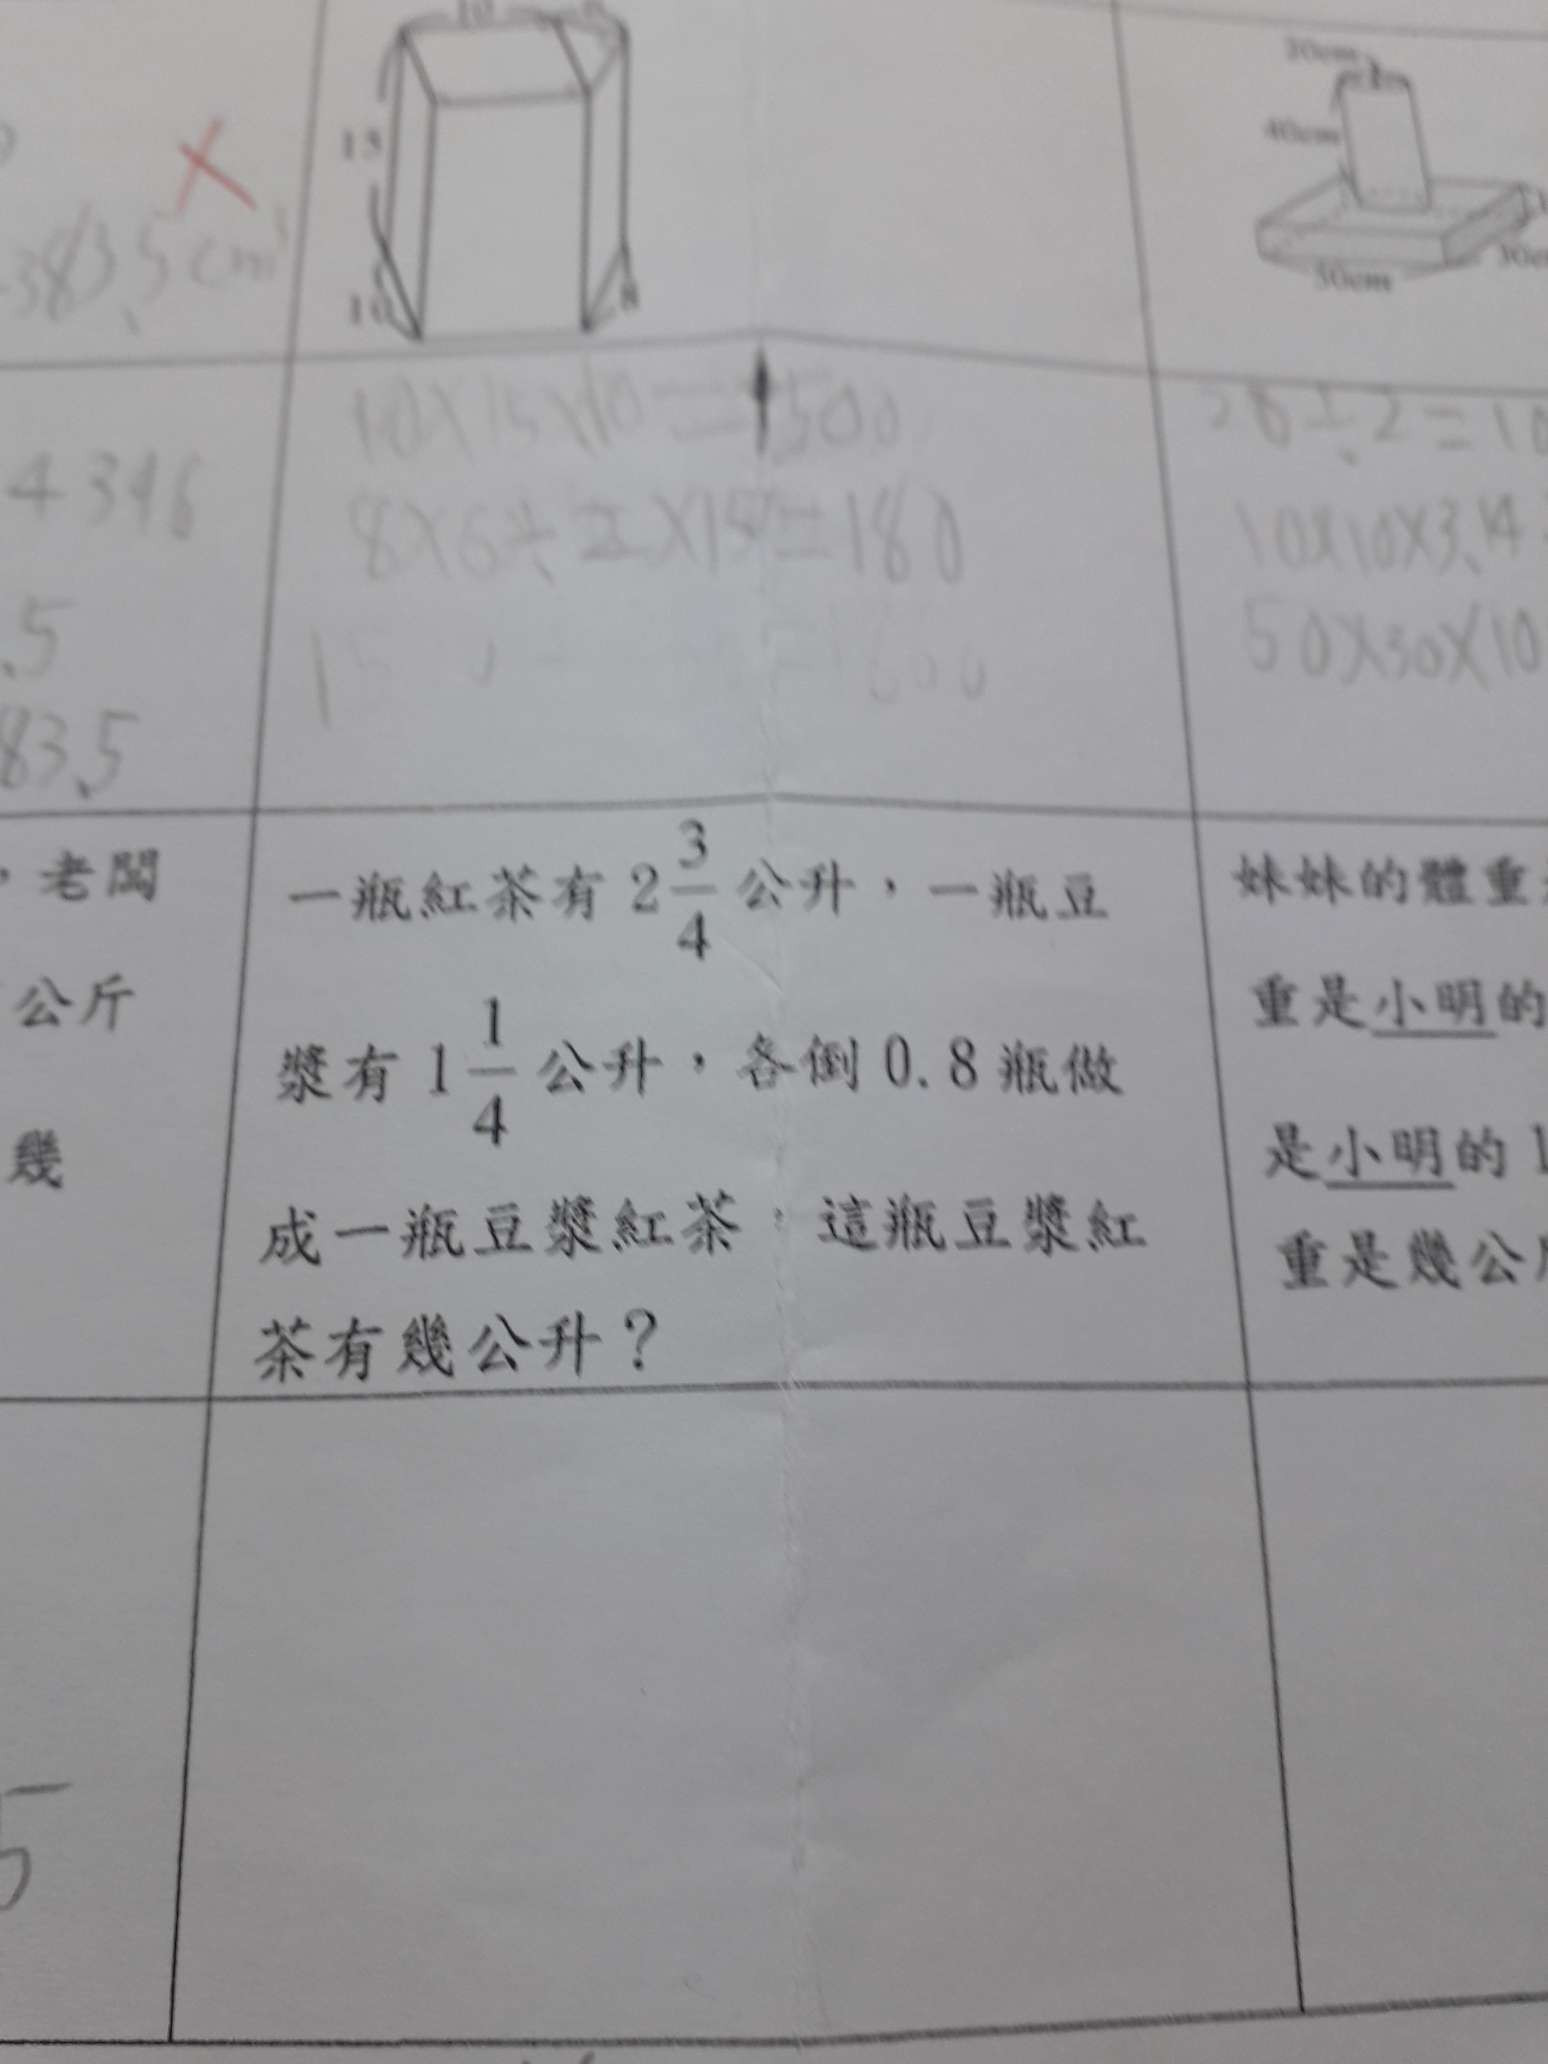 10
15
10
8
20cm
40cm
50cm
383.5cm
10×15×10=1500
20÷2=10
4396
8×6÷2×15=180
10×10×3.14
.5
50×30×10
83.5
，老闆
一瓶紅茶有 2 3/4 公升，一瓶豆
妹妹的體重
公斤
漿有 1 1/4 公升，各倒 0.8 瓶做
重是小明的
幾
成一瓶豆漿紅茶，這瓶豆漿紅
是小明的 1
茶有幾公升？
重是幾公
5